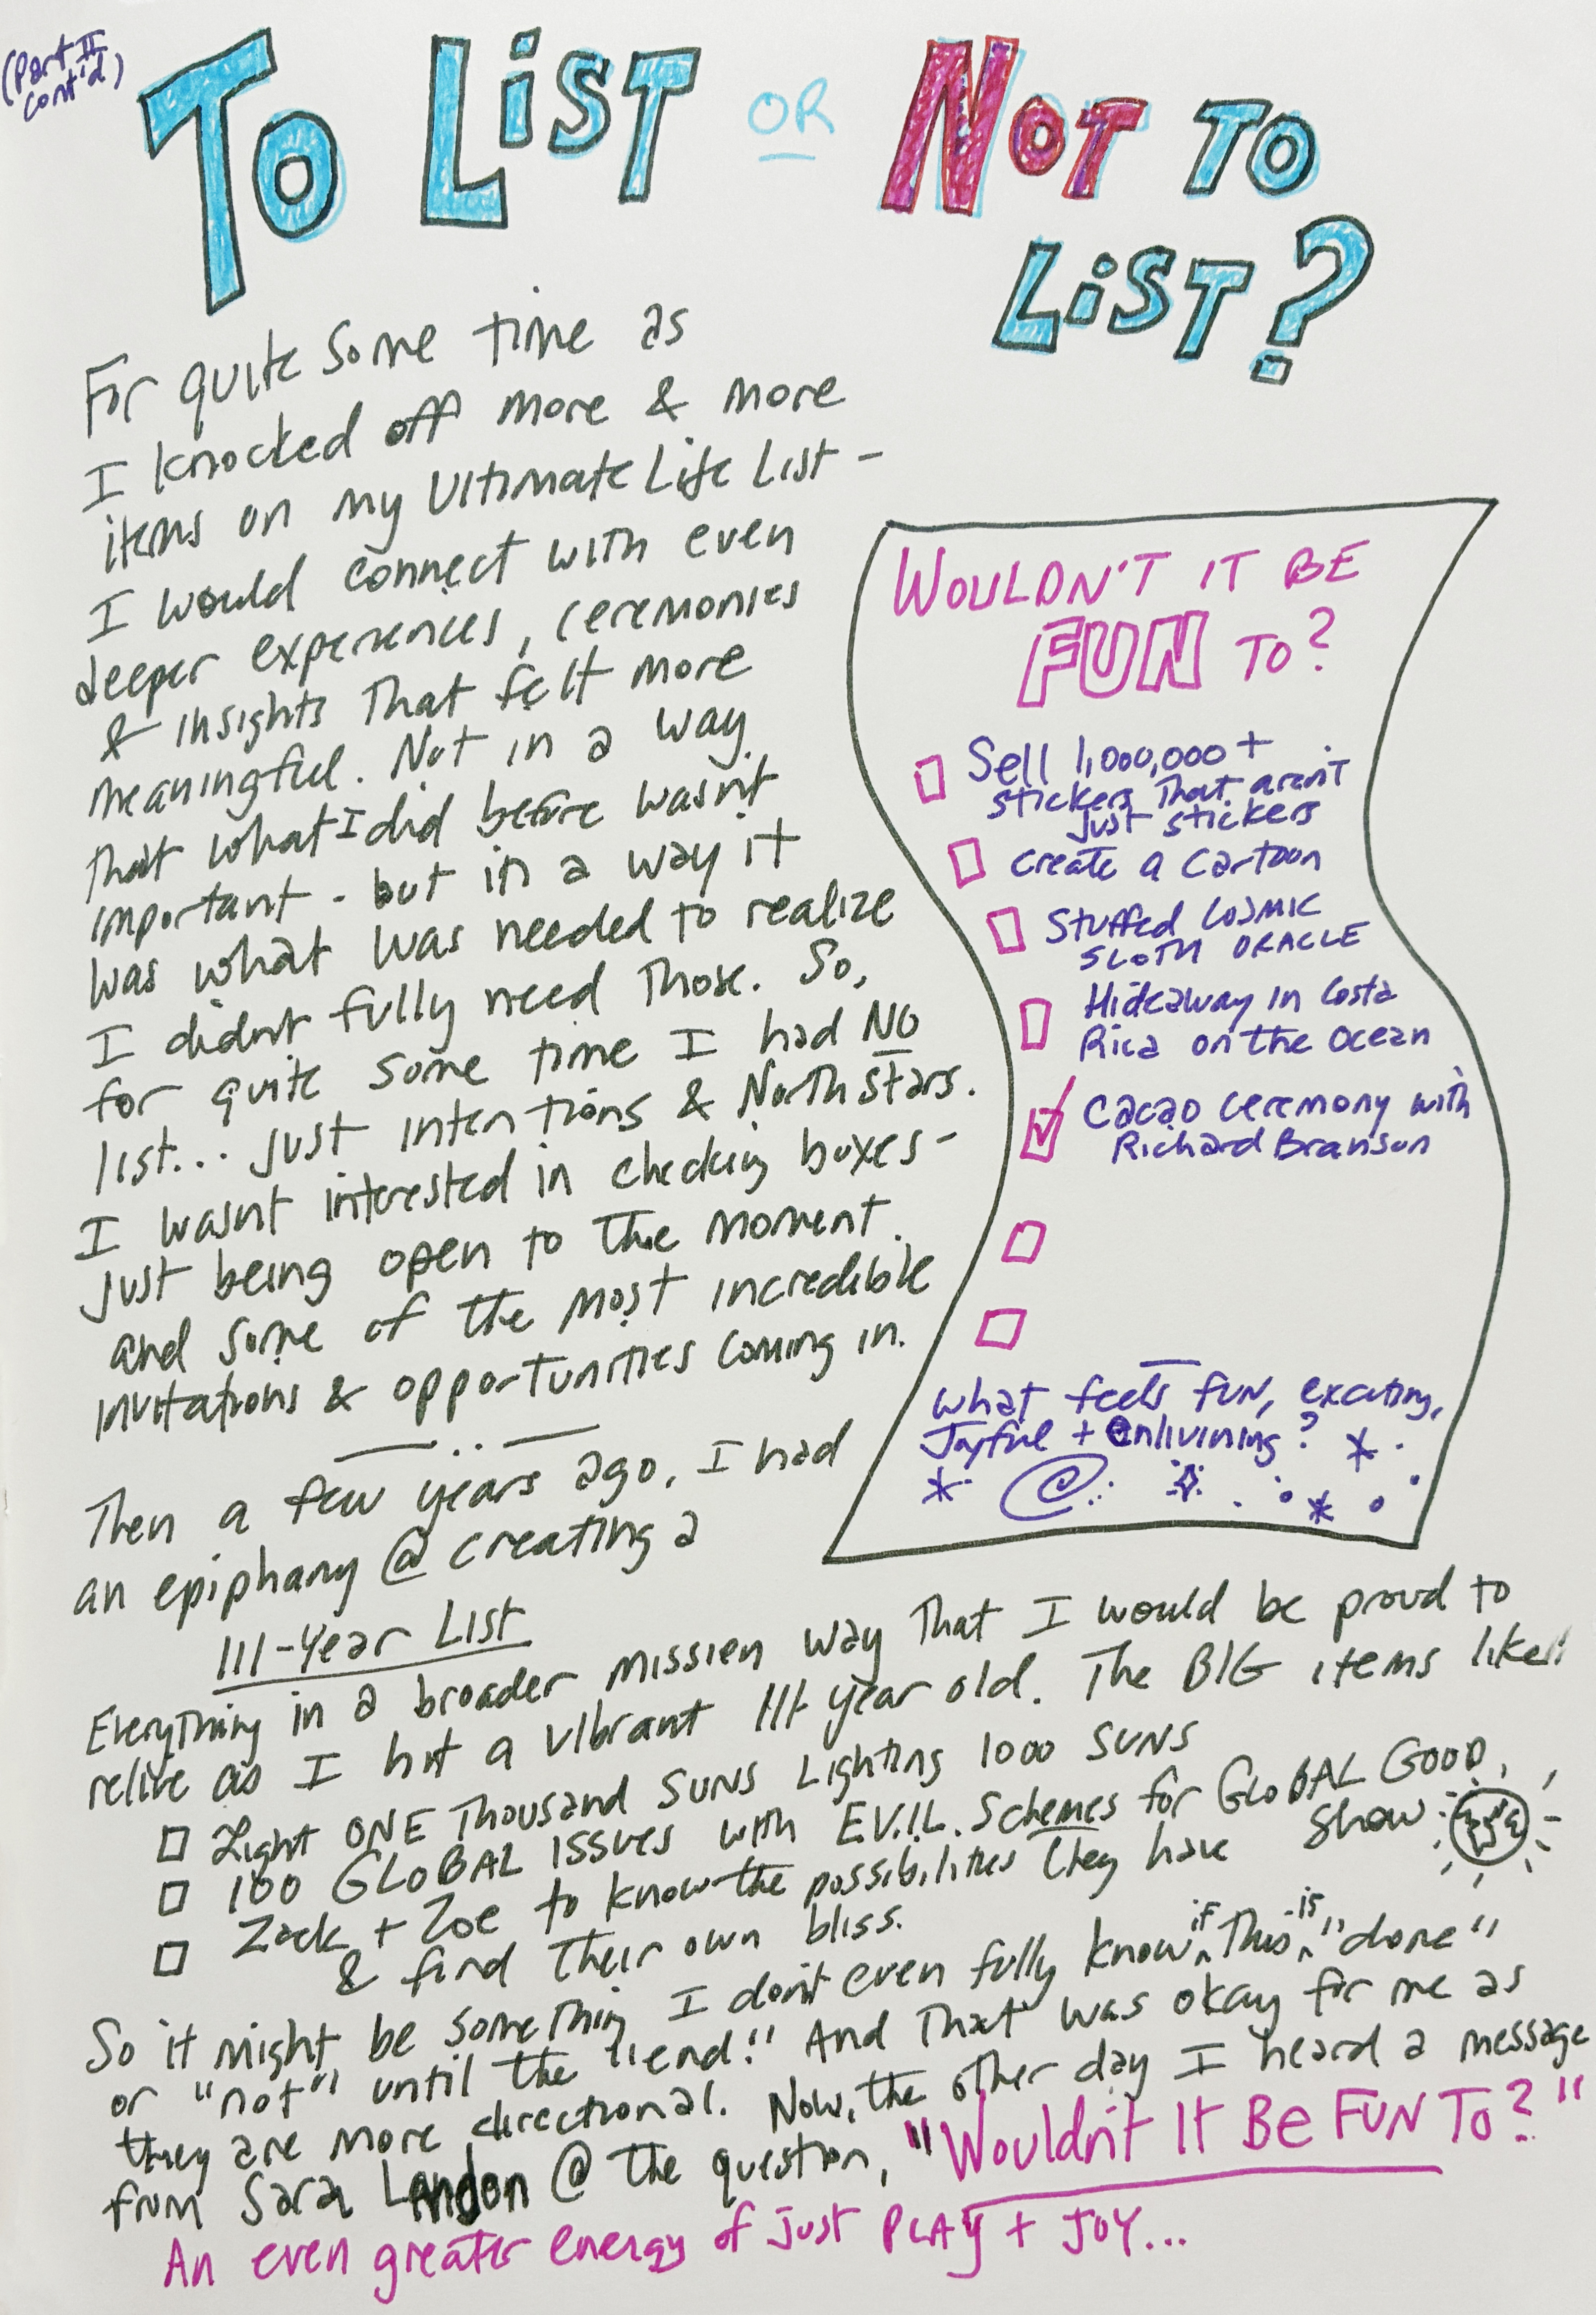 (Part II
cont'd)
TO LIST OR NOT TO
LIST?
For quite some time as
I knocked off more & more
items on my Ultimate Life List -
I would connect with even
deeper experiences, ceremonies
& insights that felt more
meaningful. Not in a way
that what I did before wasn't
important - but in a way it
was what was needed to realize
I didn't fully need those. So,
for quite some time I had NO
list... just intentions & North stars.
I wasn't interested in checking boxes -
just being open to the moment.
and some of the most incredible
invitations & opportunities coming in.
WOULDN'T IT BE
FUN TO?
Sell 1,000,000+
stickers that aren't
just stickers
Create a Cartoon
Stuffed COSMIC
SLOTH ORACLE
Hideaway in Costa
Rica on the Ocean
Cacao ceremony with
Richard Branson
What feels FUN, exciting,
Joyful + enlivining?
Then a few years ago, I had
an epiphany @ creating a
111-Year LIST
Everything in a broader mission way that I would be proud to
relive as I hit a vibrant 111 year old. The BIG items like:
Light ONE Thousand SUNS Lighting 1000 SUNS
100 GLOBAL ISSUES with E.V.I.L. Schemes for GLOBAL GOOD, show
Zack + Zoe to know the possibilities they have
& find their own bliss.
So it might be something I don't even fully know if this is "done"
or "not" until the "end!" And that was okay for me as
they are more directional. Now, the other day I heard a message
from Sara Landon @ the question, "Wouldn't It Be FUN To?"
An even greater energy of just PLAY + JOY...